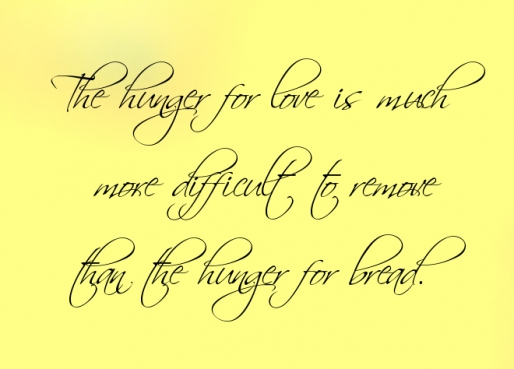 The hunger for love is much
more difficult to remove
than the hunger for bread.